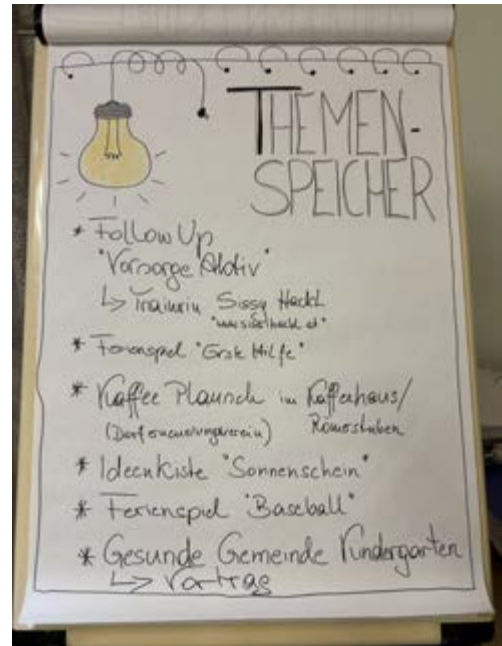 THEMEN-
SPEICHER
* Follow Up
"Vorsorge Aktiv"
↳ Trainerin Sissy Hackl
* Ferienspiel "Erste Hilfe"
* Kaffee Plausch im Kaffeehaus/
(Dorferneuerungsverein) Römerstuben
* Ideenkiste "Sonnenschein"
* Ferienspiel "Baseball"
* Gesunde Gemeinde Kindergarten
↳ Vortrag